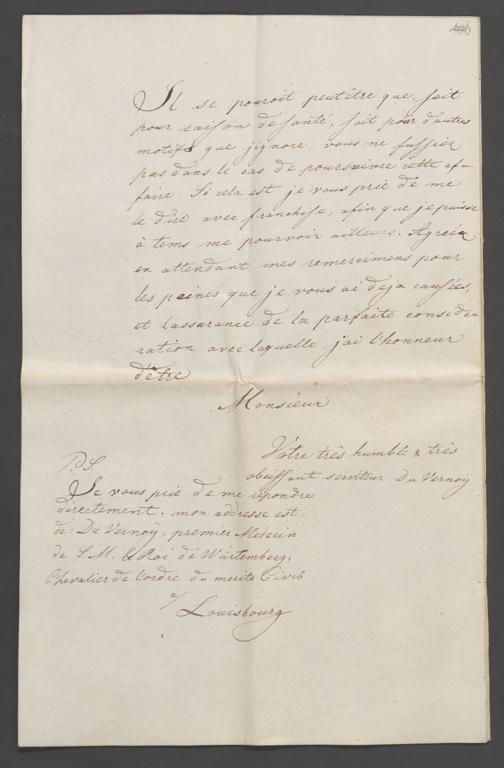 Il se pouroit peutêtre que, soit
pour raison de santé, soit pour d'autres
motifs que j'ignore vous ne fussiez
pas dans le cas de poursuivre cette af-
faire. Si cela est je vous prie de me
le dire avec franchise, afin que je puisse
à tems me pourvoir ailleurs. Agréez
en attendant mes remercimens pour
les peines que je vous ai deja causées,
et l'assurance de la parfaite conside-
ration avec laquelle j'ai l'honneur
d'être
Monsieur
Vôtre três humble & três
obeissant serviteur Du Vernoÿ
P.S.
Je vous prie de me repondre
directement. mon addresse est:
de: Du Vernoÿ, premier Medecin
de S. M. le Roi de Würtemberg,
Chevalier de l'ordre du merite Civil
a/ Louisbourg